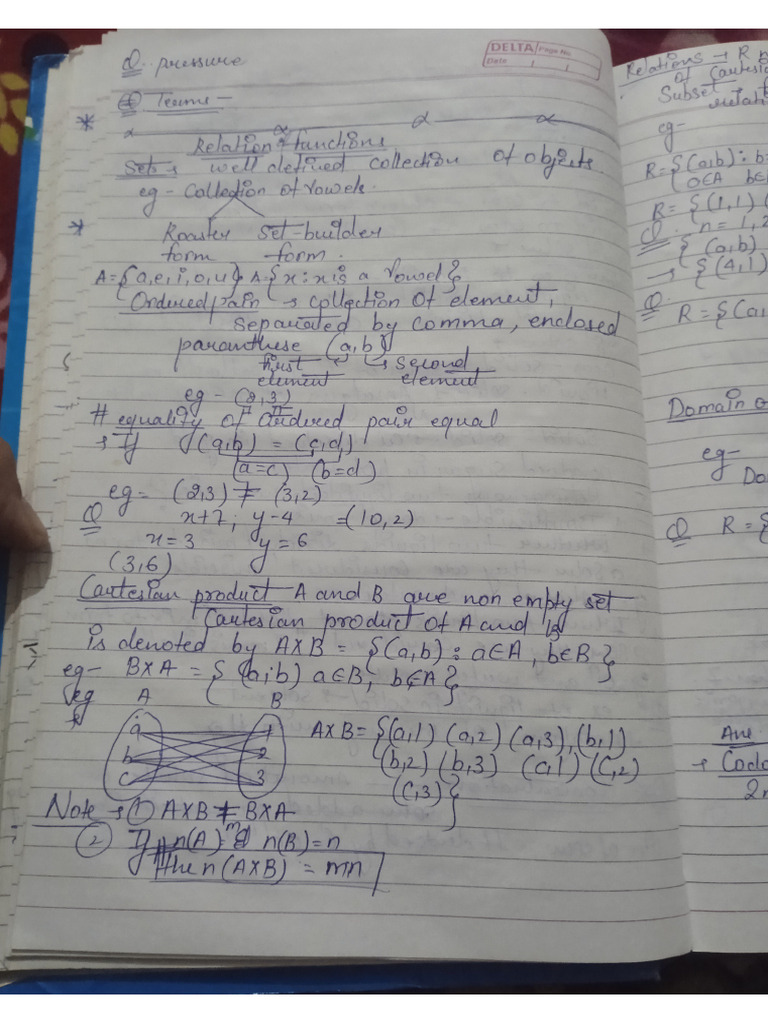 Q. pressure
DELTA Page No.
Date / /
Q Terms -
* α α α α
Relation & functions
Sets → well defined collection of objects.
eg - Collection of vowels.
* Roaster Set-builder
form form.
A = {a, e, i, o, u} A {x : x is a vowel}
Ordered pair → collection of element,
separated by comma, enclosed
paranthese (a, b)
first second
element element
eg - (2, 3)
# equality of ordered pair equal
→ If (a, b) = (c, d)
(a = c) (b = d)
eg = (2, 3) ≠ (3, 2)
Q x + 7 ; y - 4 = (10, 2)
x = 3 y = 6
(3, 6)
Cartesian product A and B are non empty set
Cartesian product of A and B
is denoted by A×B = {(a, b) : a∈A, b∈B}
eg - B×A = {(a, b) a∈B; b∈A}
eg A B
a 1
b 2
c 3
A×B = {(a, 1) (a, 2) (a, 3), (b, 1)
(b, 2) (b, 3) (c, 1) (c, 2)
(c, 3)}
Note → ① A×B ≠ B×A
② If n(A) = m & n(B) = n
then n(A×B) = mn
Relations → R
of Cartesia
Subset
relati
eg -
R = {(a, b) : b =
a∈A b∈
R = {(1, 1) (
Q. n = 1, 2
{(a, b)
→ {(4, 1)
Q.
R = {(a,
Domain o
eg -
Do
Q R = {
Ans
→ Codo